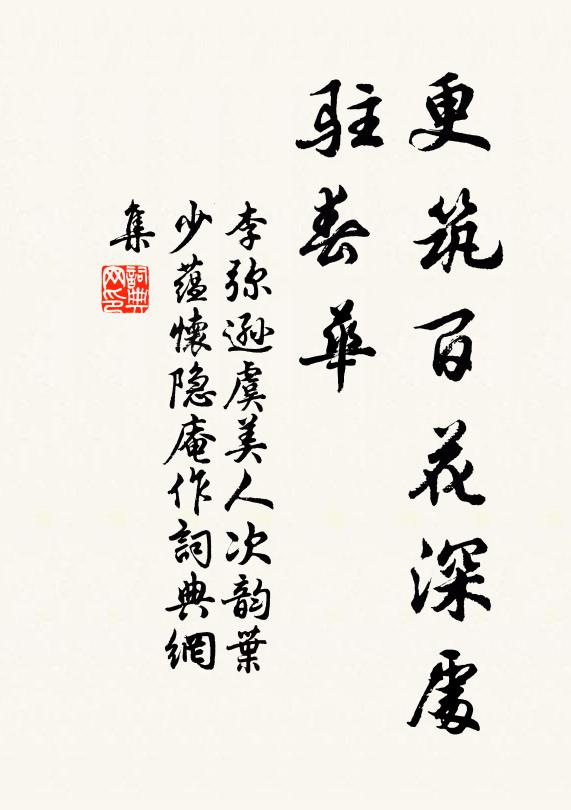 更筑百花深處
駐春華
李弥遜虞美人次韵葉
少蕴懷隐庵作詞典網
集
詞典
网印